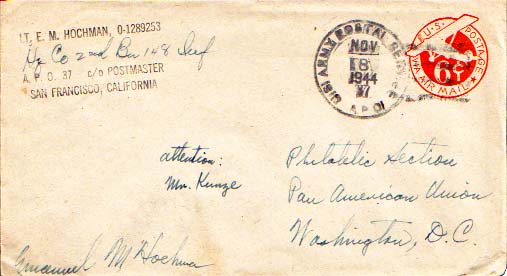 LT. E. M. HOCHMAN, O-1289253
Hq Co 2nd Bn 148 Inf
A. P. O. 37 c/o POSTMASTER
SAN FRANCISCO, CALIFORNIA
U.S. ARMY POSTAL SERVICE
NOV
8
1944
A.P.O.
U.S. POSTAGE
6¢
VIA AIR MAIL
attention:
Mr. Kunze
Philatelic Section
Pan American Union
Washington, D.C.
Emanuel M Hochman